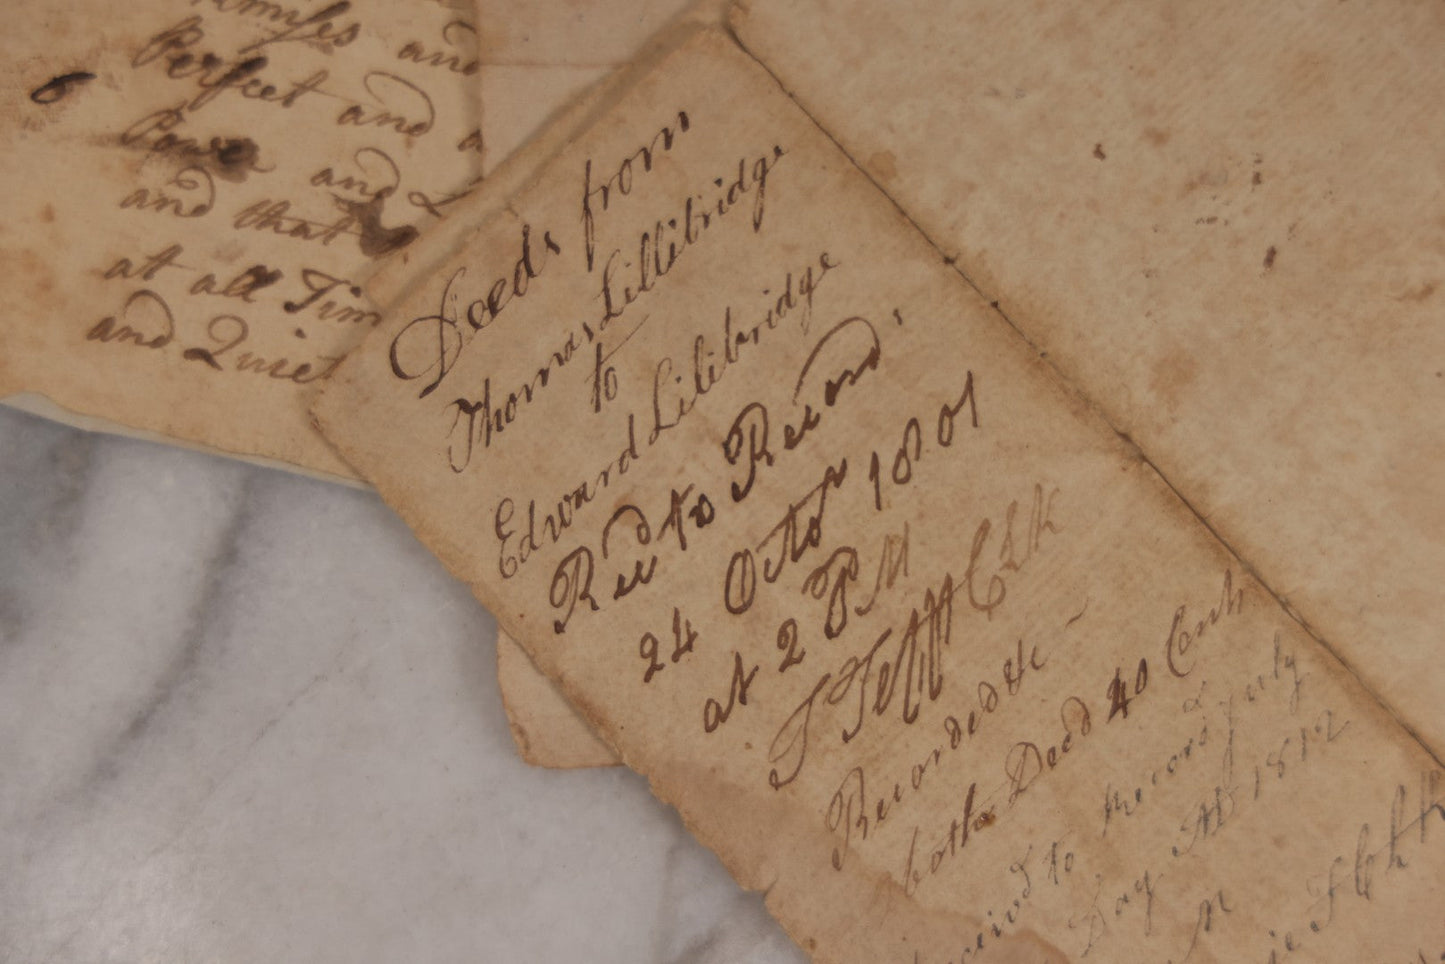 and
Perfect and
Power and
and that
at all Tim
and Quiet
Deeds from
Thomas Lillibridge
to
Edward Lillibridge
Recd to Record,
24 Octor 1801
at 2 PM
T Tefft Clk
Recorded &c
both Deed 40 Cents
to Record July
Day AD 1812
M